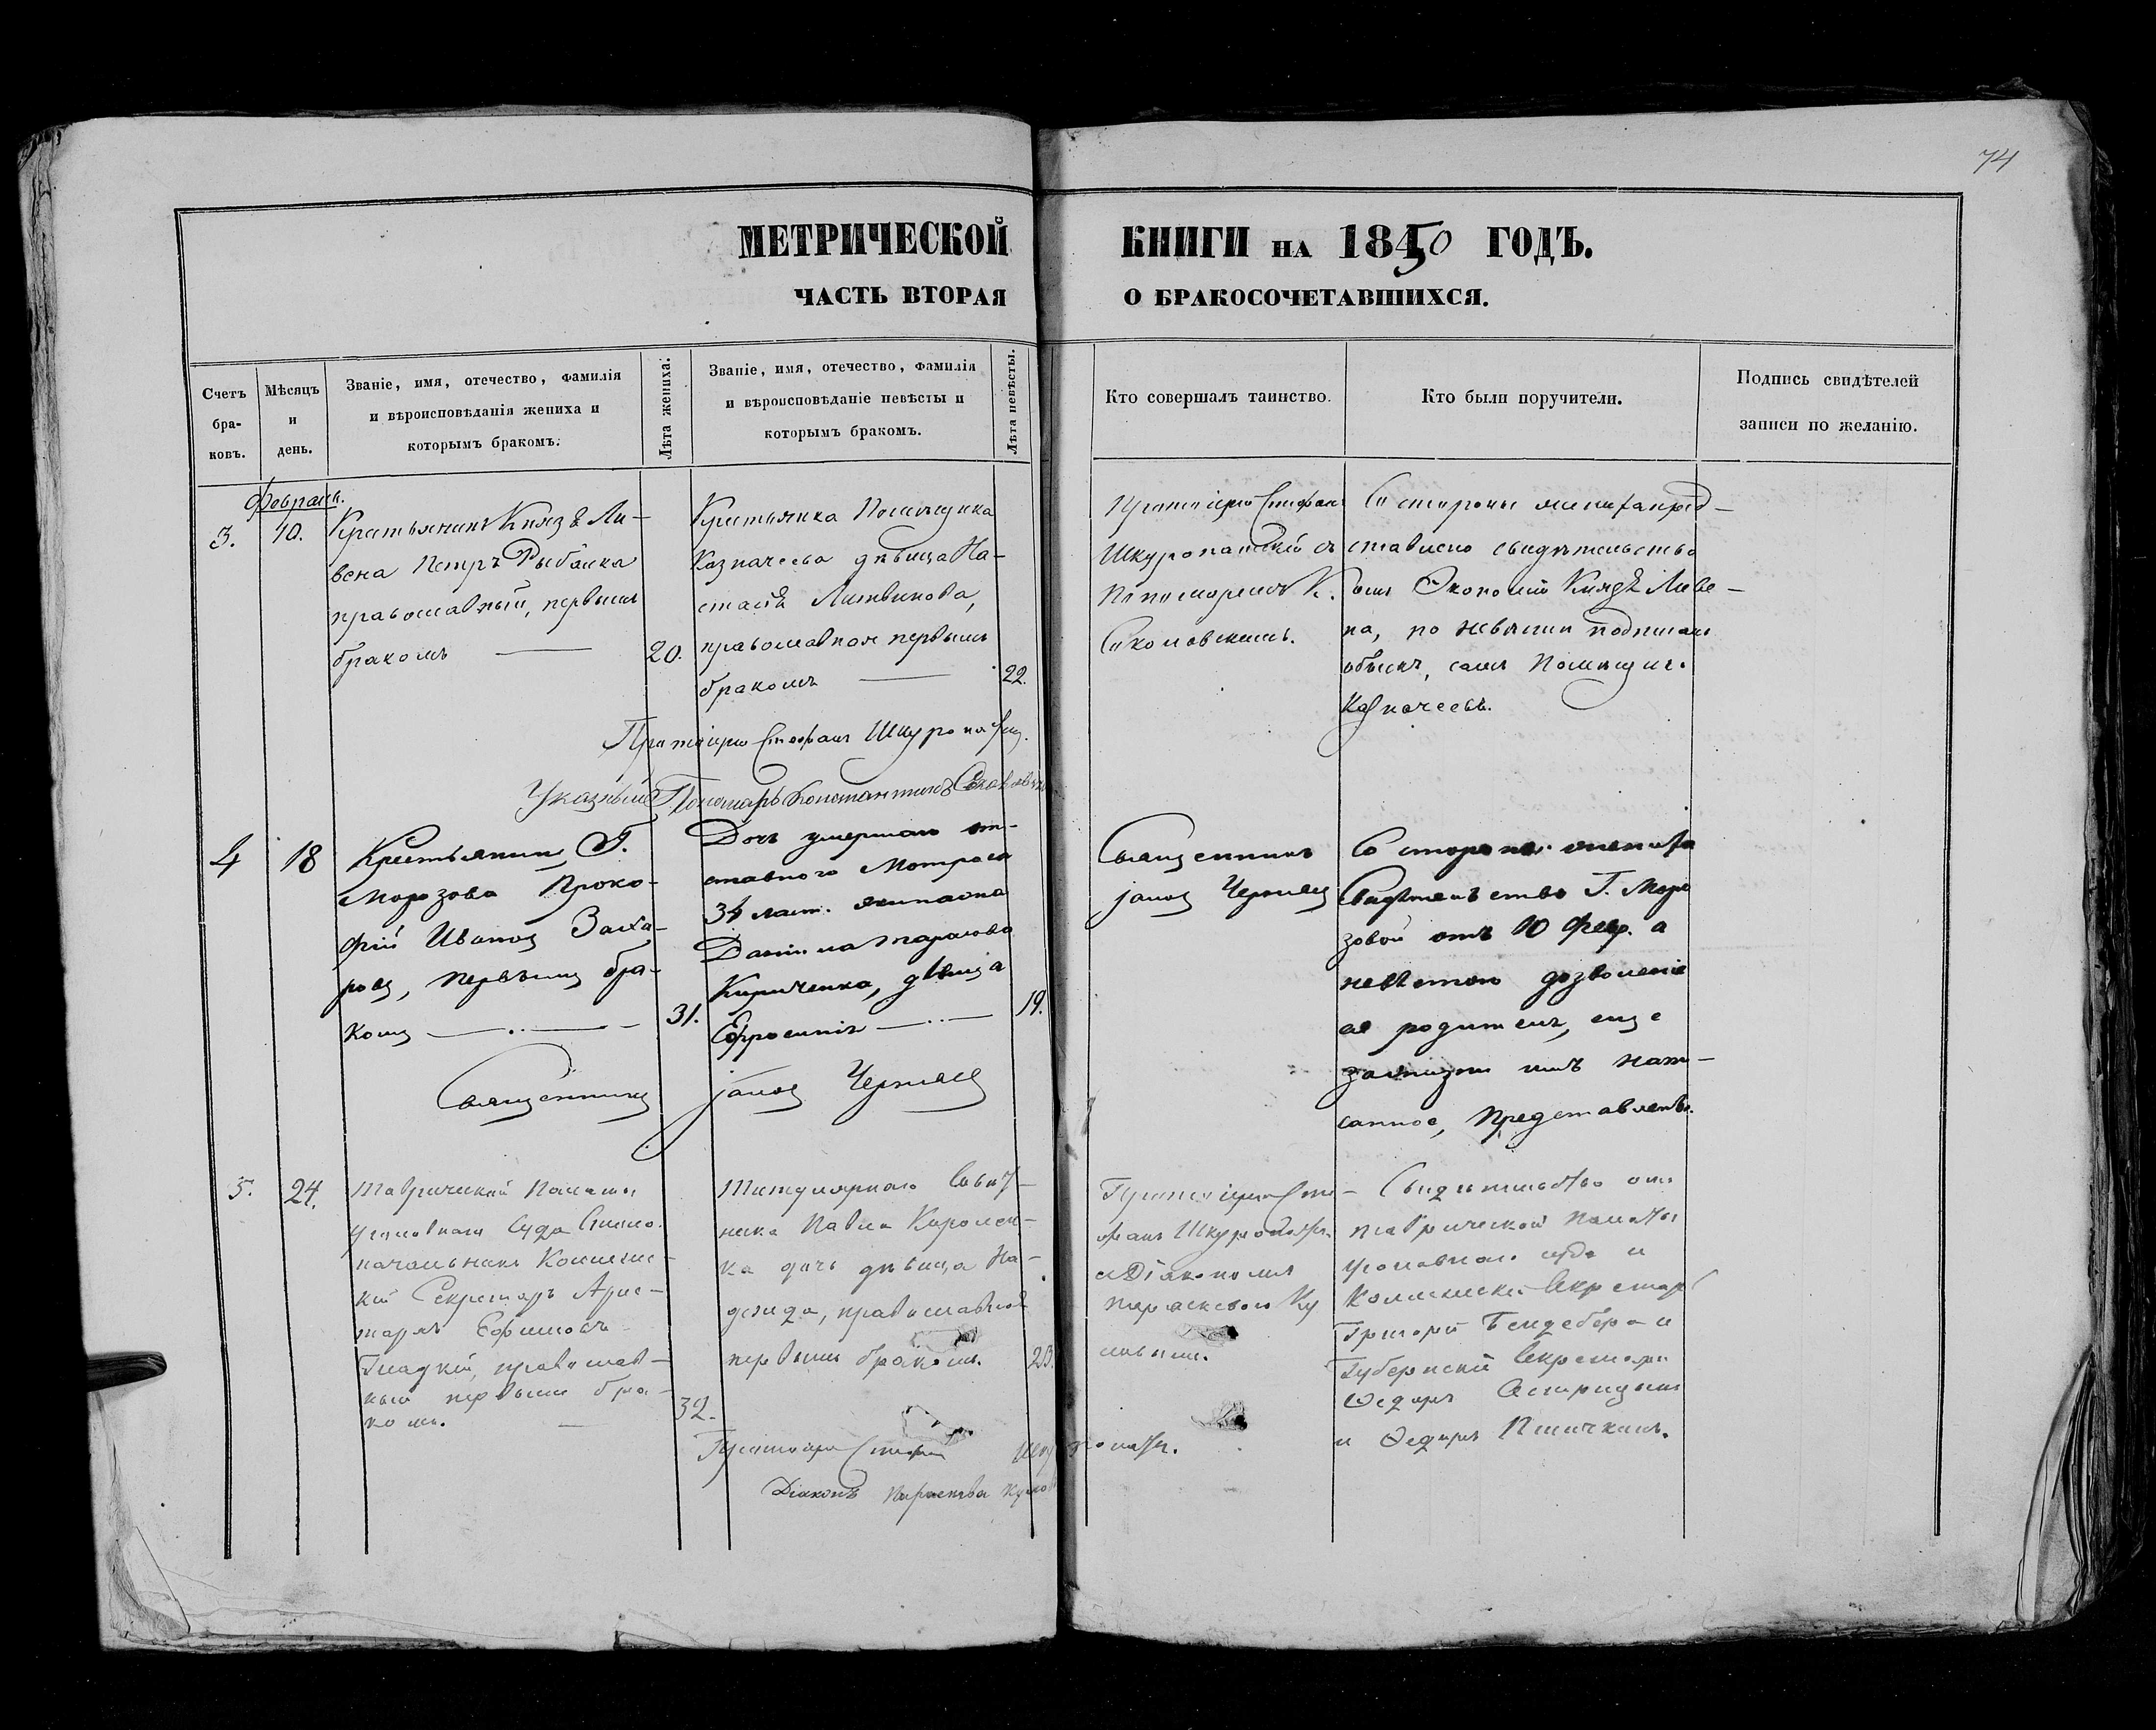 74
МЕТРИЧЕСКОЙ КНИГИ НА 1850 ГОДЪ.
ЧАСТЬ ВТОРАЯ О БРАКОСОЧЕТАВШИХСЯ.
Счетъ бра-ковъ.
Мѣсяцъ и день.
Званіе, имя, отечество, фамилія
и вѣроисповѣданія жениха и
которымъ бракомъ.
Лѣта жениха.
Званіе, имя, отечество, фамилія
и вѣроисповѣданіе невѣсты и
которымъ бракомъ.
Лѣта невѣсты.
Кто совершалъ таинство.
Кто были поручители.
Подпись свидѣтелей
записи по желанію.
Февраль.
3.
10.
Крестьянинъ Князя Ли-
вена Петръ Рыбалка
православный, первымъ
бракомъ
20.
Крестьянка Помещика
Казначеева дѣвица На-
стасія Литвинова,
православная первымъ
бракомъ
22.
Протоіерей Стефанъ
Шкуропатскій съ
Пономаремъ К.
Соколовскимъ.
Съ стороны жениха пред-
ставлено свидѣтельство
отъ Экономіи Князя Ливе-
на, по невѣстѣ подписалъ
обыскъ, самъ Помещикъ
Казначеевъ.
Протоіерей Стефанъ Шкуропат
Указный Пономарь Константинъ Соколовскій
4
18
Крестьянинъ Г.
Морозова Проко-
фій Ивановъ Заха-
ровъ, первымъ бра-
комъ
31.
Дочь умершаго от-
ставного Матроса
34 ласт. экипажа
Даніила Тарасова
Кириченка, дѣвица
Ефросинія
19.
Священникъ
Іаковъ Чернявъ
Со стороны жениха
Свидѣтельство Г. Моро
зовой отъ 10 Февр. а
невѣстою дозволеніе
ея родителя, еще
за жизни имъ напи-
санное, представлено.
Священникъ Іаковъ Чернявъ
5.
24.
Таврической Палаты
Уголовнаго Суда Столо-
начальникъ Коллежс-
кій Секретарь Арис-
тархъ Ефимовъ
Гладкій, православ-
ный первымъ бра-
комъ.
32.
Титулярнаго Совѣт-
ника Павла Королен-
ка дочь дѣвица На-
дежда, православной
первымъ бракомъ.
23.
Протоіерей Сте-
фанъ Шкуропат
съ Діакономъ
Свидѣтельство отъ
таврической палаты
уголовнаго суда и
Коллежскій Секретарь
Григорій Бендебери и
Губернскій Секретарь
Ѳедоръ
и Ѳедоръ Птичкинъ.
Протоіерей Стефанъ Шкуропат.
Діаконъ